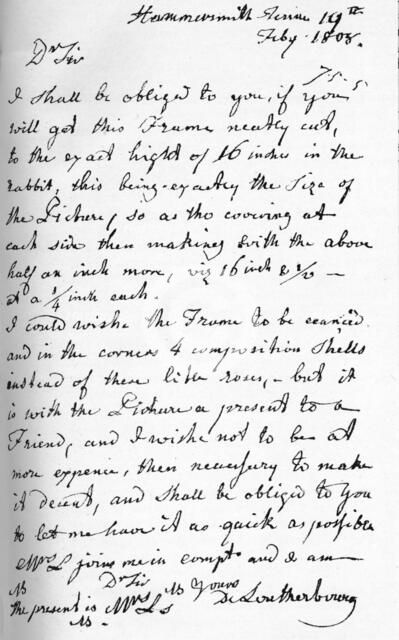 Hammersmith Terrace 19th
Feby. 1808.
Dr Sir
I shall be obliged to you, if you
will get this Frame neatly cut,
to the exact hight of 16 inches in the
rabbit, this being exactly the Size of
the Picture, so as the covering at
each side then making with the above
half an inch more, viz 16 inch & 1/2 —
at a 1/4 inch each.
I could wishe the Frame to be
and in the corners 4 composition Shells
instead of these little roses, - but it
is with the Picture a present to a
Friend, and I wishe not to be at
more expence, then necessary to make
it decent, and shall be obliged to you
to let me have it as quick as possible
Mrs L joins me in compts and I am
Dr Sir
NB Yours
the present is Mrs Ls De Loutherbourg
NB.